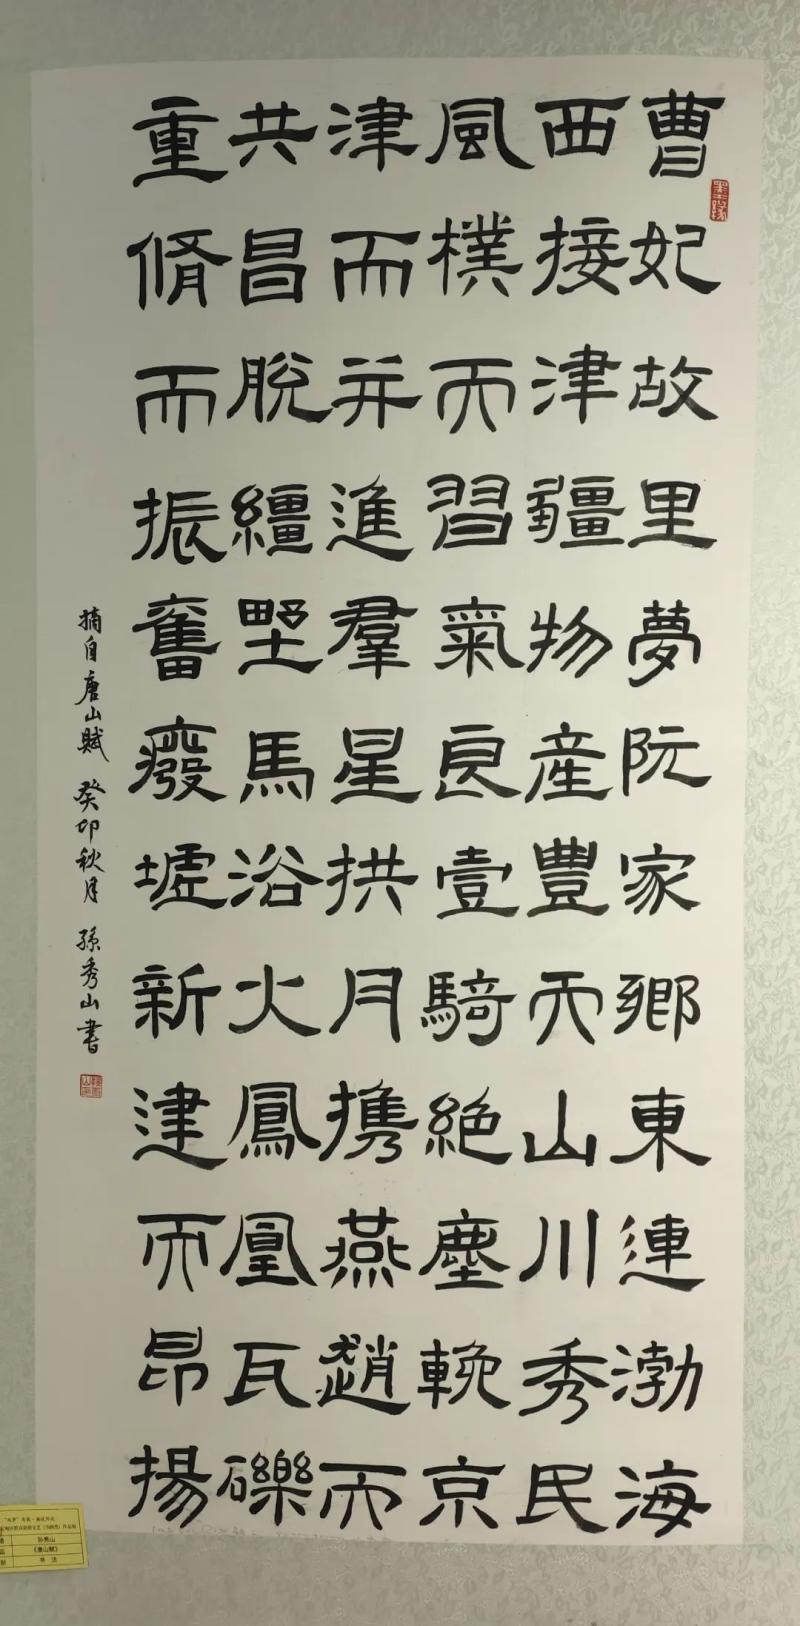 曹妃故里夢阮家鄉東連渤海
西接津疆物產豐天山川秀民
風樸而習氣良壹騎絶塵輓京
津而并進羣星拱月携燕趙而
共昌脫繮野馬浴火鳳凰瓦礫
重脩而振奮廢墟新建而昂揚
摘自唐山賦 癸卯秋月 孫秀山書
孙秀山
《唐山赋》
书 法